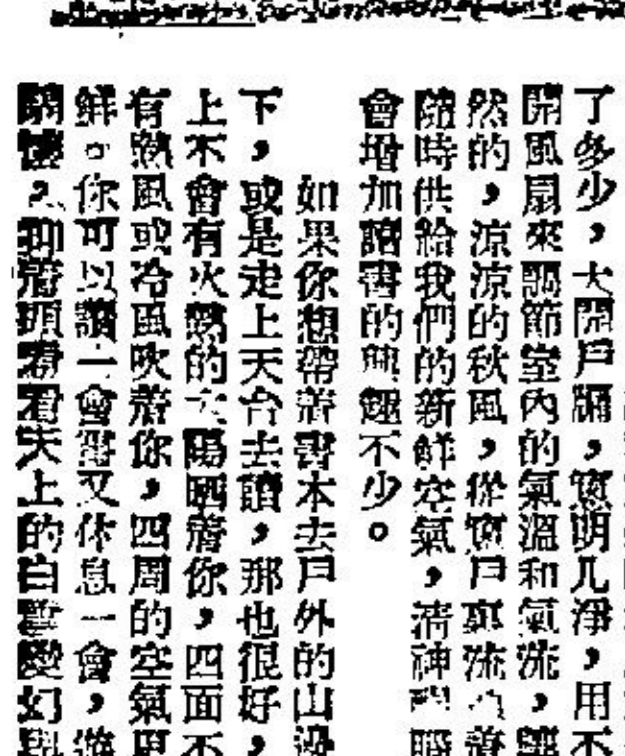 了多少，大開戶牖，窗明几淨，用不
開風扇來調節室內的氣溫和氣流，雖
然的，涼涼的秋風，從窗戶裏流
隨時供給我們的新鮮空氣，清神醒
會增加讀書的興趣不少。
如果你想帶着書本去戶外的山邊
下，或是走上天台去讀，那也很好，
上不會有火熱的太陽晒着你，四面不
有熱風或冷風吹着你，四周的空氣更
鮮。你可以讀一會書又休息一會，遊
，抑着頭看看天上的白雲變幻與